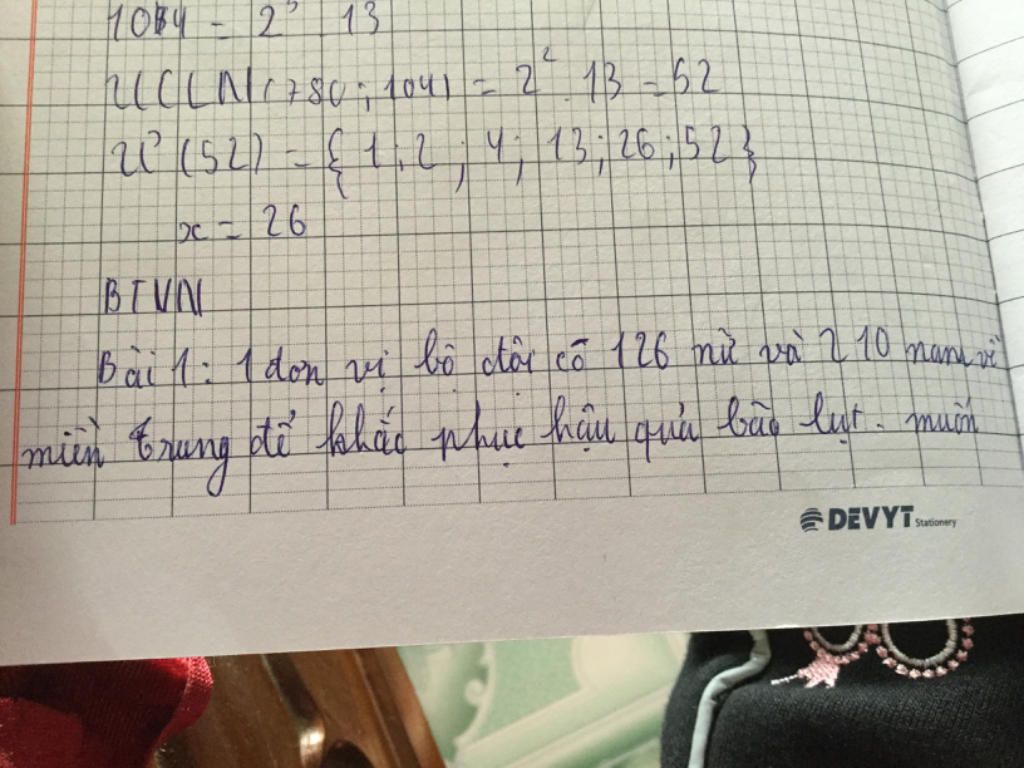 104 = 2³ 13
ƯCLN(780; 104) = 2² . 13 = 52
Ư(52) = {1; 2; 4; 13; 26; 52}
x = 26
BTVN
Bài 1: 1 đơn vị bộ đội có 126 nữ và 210 nam về
miền trung để khắc phục hậu quả bão lụt. muốn
DEVYT Stationery